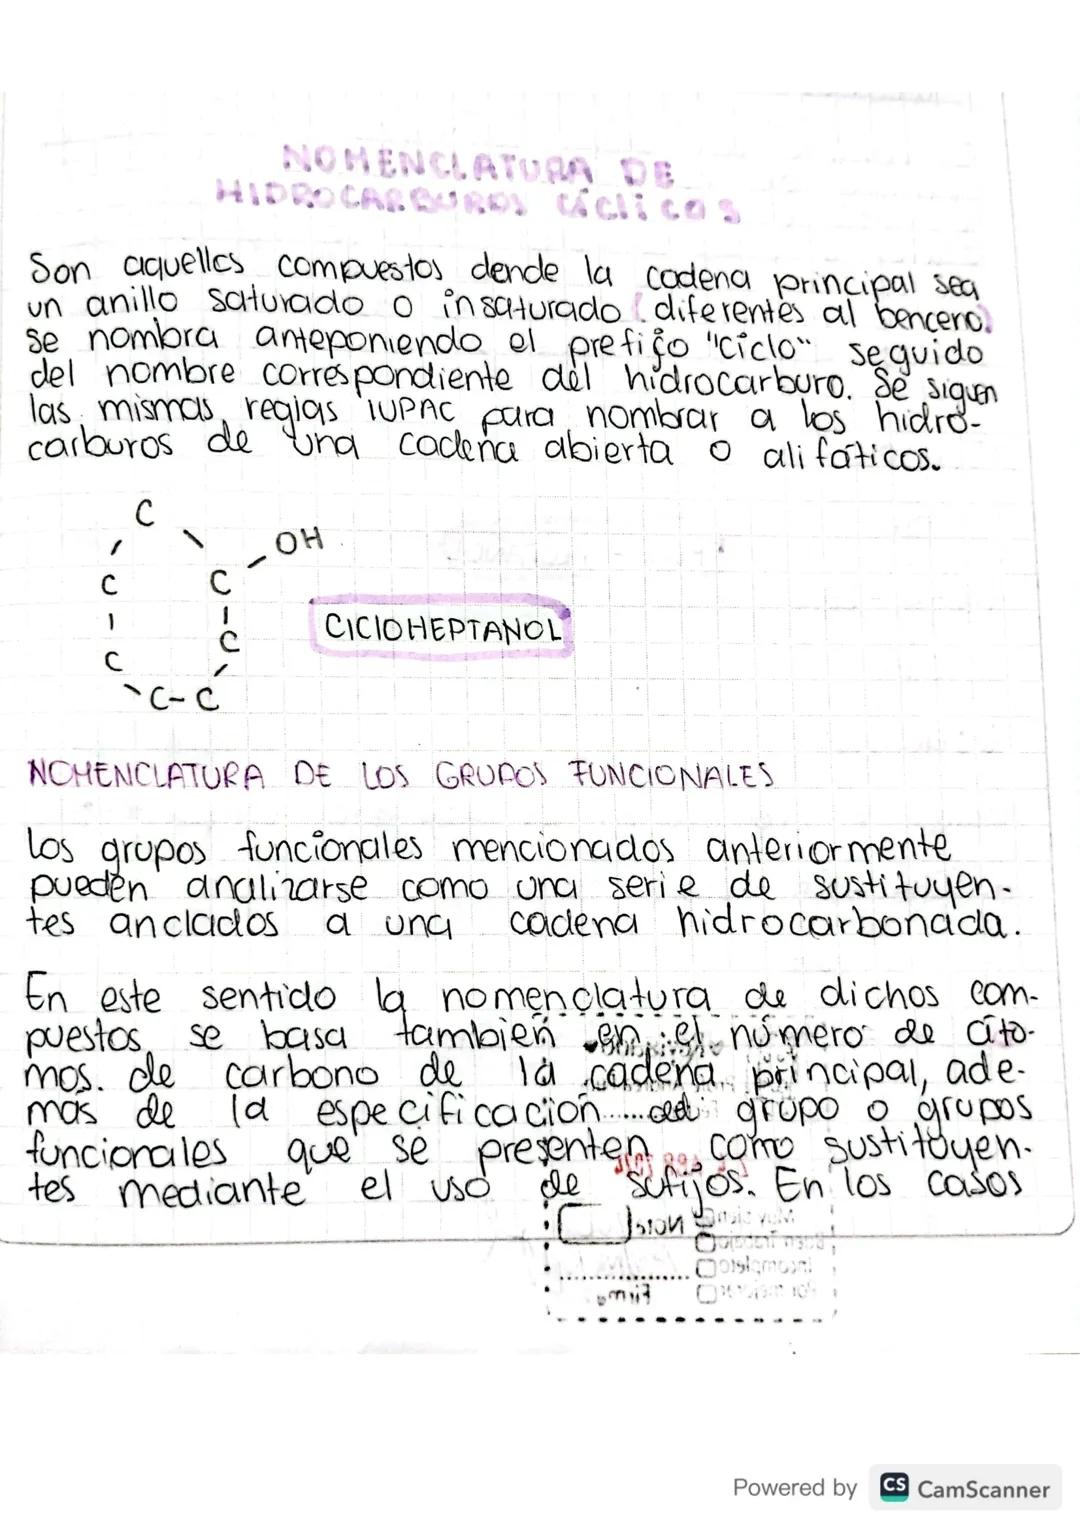 NOMENCLATURA DE
HIDROCARBUROS CÍCLICOS
Son aquellos compuestos donde la cadena principal sea
un anillo saturado o insaturado (diferentes al benceno)
se nombra anteponiendo el prefijo "ciclo" seguido
del nombre correspondiente del hidrocarburo. Se siguen
las mismas reglas IUPAC para nombrar a los hidro-
carburos de una cadena abierta o alifáticos.
C
OH
C C
C
C
C-C
CICLOHEPTANOL
NOMENCLATURA DE LOS GRUPOS FUNCIONALES
Los grupos funcionales mencionados anteriormente
pueden analizarse como una serie de sustituyen-
tes anclados a una cadena hidrocarbonada.
En este sentido la nomenclatura de dichos com-
puestos se basa también en el número de áto-
mos de carbono de la cadena principal, ade-
más de la especificación del grupo o grupos
funcionales que se presenten como sustituyen-
tes mediante el uso de sufijos. En los casos
Nota
Muy bien
Buen Trabajo
Incompleto
Por mejorar
Firma
Powered by CS CamScanner